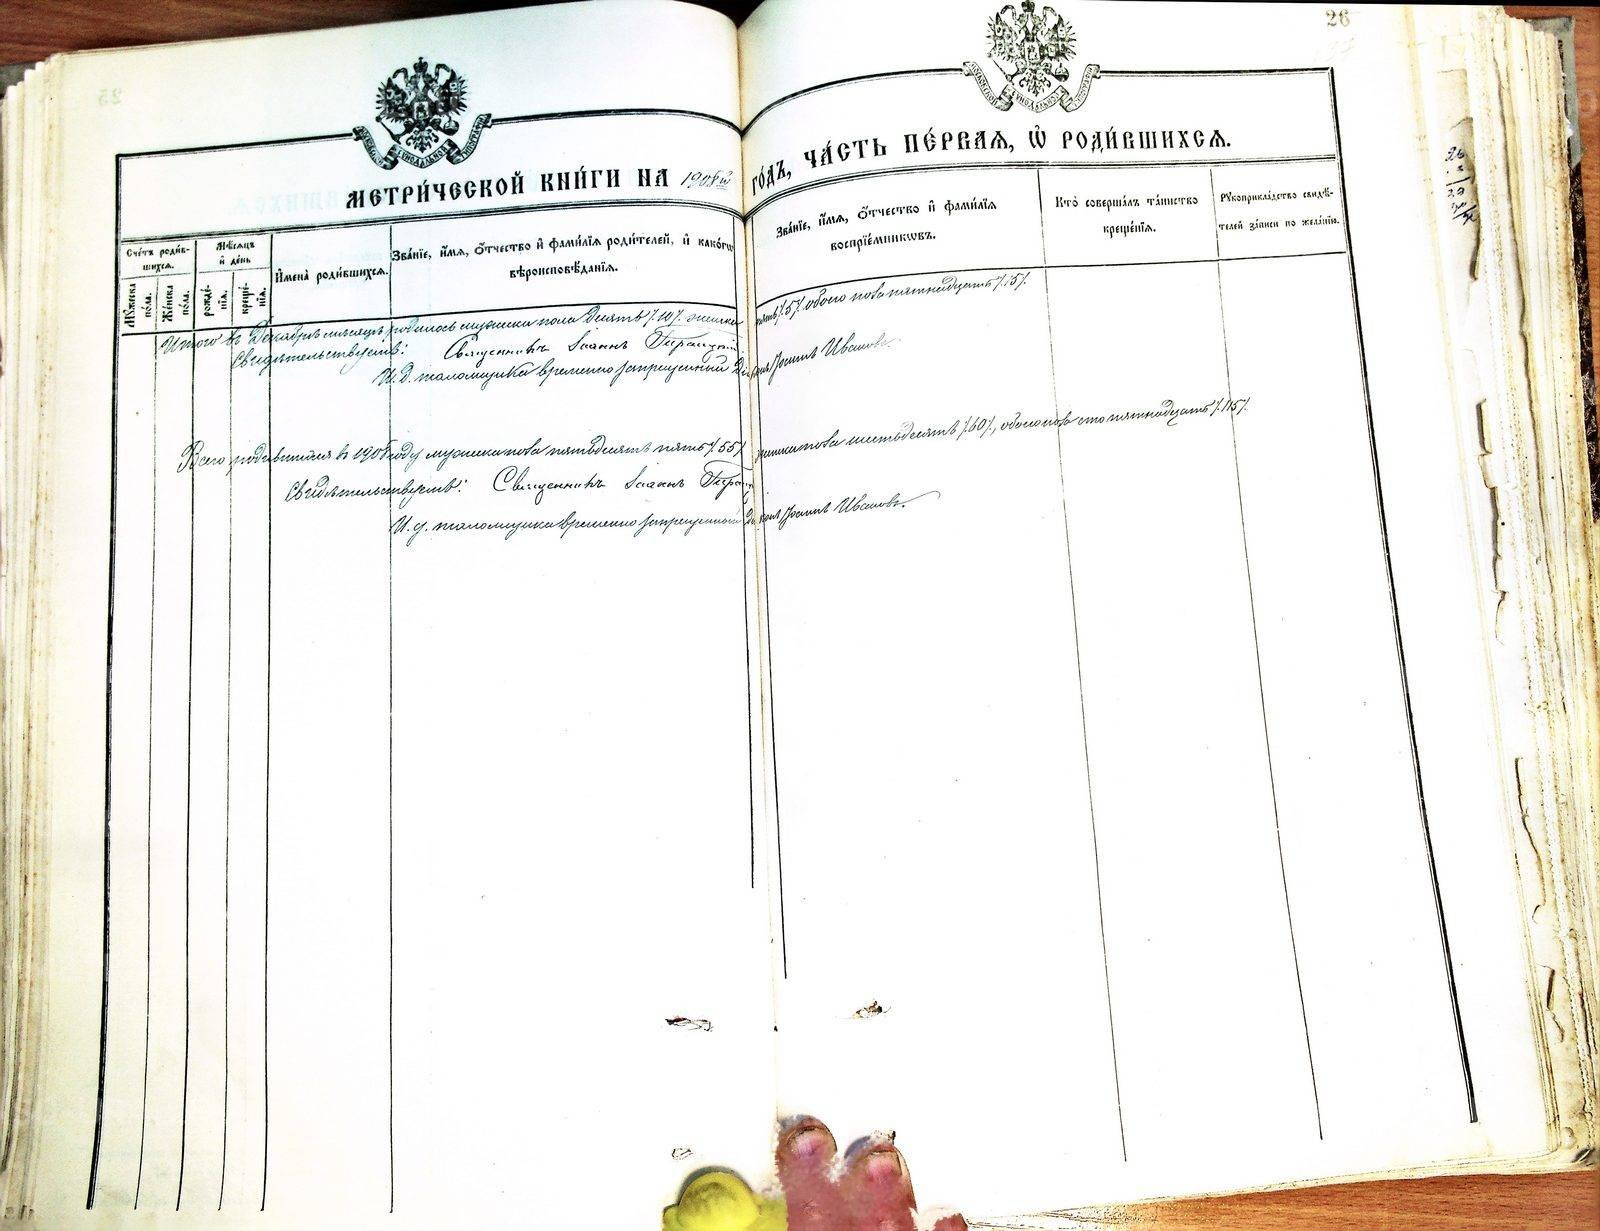 26
МЕТРИ́ЧЕСКОЙ КНИ́ГИ НА 1908й ГО́ДЪ, ЧА́СТЬ ПЕ́РВАЯ, Ѡ҆ РОДИ́ВШИХСЯ.
Сче́тъ роди́в-
шихся.
Мѣ́сяцъ
и҆ де́нь
Мꙋ́жеска
по́ла.
Же́нска
по́ла.
рожде́-
нїя.
креще́-
нїя.
И҆мена̀ роди́вшихся.
Зва́нїе, и҆́мя, ѻ҆́тчество и҆ фами́лїя роди́телей, и҆ како́гѡ
вѣроисповѣ́данїя.
Зва́нїе, и҆́мя, ѻ҆́тчество и҆ фами́лїя
воспрїе́мникѡвъ.
Кто̀ соверша́лъ та́инство
креще́нїя.
Рꙋкоприкла́дство свидѣ́-
телей за́писи по жела́нїю.
Итого въ Декабрѣ мѣсяцѣ родилось мужска пола десять /.10/. женска пять /.5/. обоего пола пятнадцать /.15/.
Свидѣтельствуетъ: Священникъ Іоаннъ
И. Д. псаломщика временно запрещенный Діаконъ Іоаннъ Ивановъ
Всего родившихся въ 1908 году мужска пола пятьдесятъ пять /.55/. женска пола шестьдесятъ /.60/., обоего пола сто пятнадцать /.115/.
Свидѣтельствуетъ: Священникъ Іоаннъ
И. д. псаломщика временно запрещенный Діаконъ Іоаннъ Ивановъ.